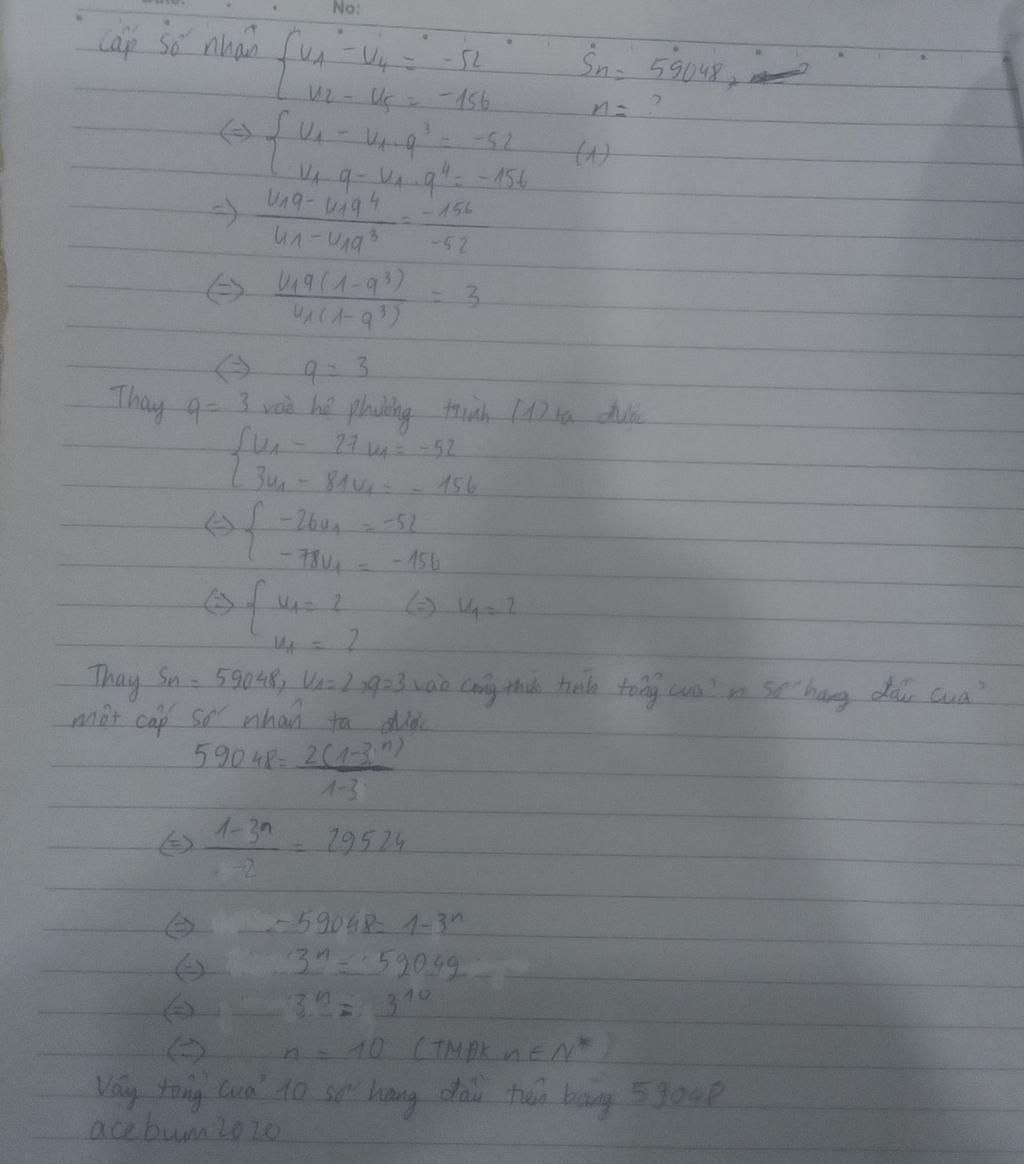 No:
cấp số nhân { u1 - u4 = -52 Sn = 59048,
u2 - u5 = -156 n = ?
<=> { u1 - u1.q³ = -52 (1)
u1.q - u1.q⁴ = -156
=> (u1q - u1q⁴)/(u1 - u1q³) = -156/-52
<=> u1q(1-q³)/u1(1-q³) = 3
<=> q = 3
Thay q = 3 vào hệ phương trình (1) ta được
{ u1 - 27u1 = -52
3u1 - 81u1 = -156
<=> { -26u1 = -52
-78u1 = -156
<=> { u1 = 2 <=> u1 = 2
u1 = 2
Thay Sn = 59048, u1=2, q=3 vào công thức tính tổng của n số hạng đầu của
một cấp số nhân ta được
59048 = 2(1-3ⁿ)/1-3
<=> 1-3ⁿ/-2 = 29524
<=> -59048 = 1-3ⁿ
<=> 3ⁿ = 59049
<=> 3ⁿ = 3¹⁰
<=> n = 10 (TMĐK n∈N*)
Vậy tổng của 10 số hạng đầu tiên bằng 59048
acebum2020